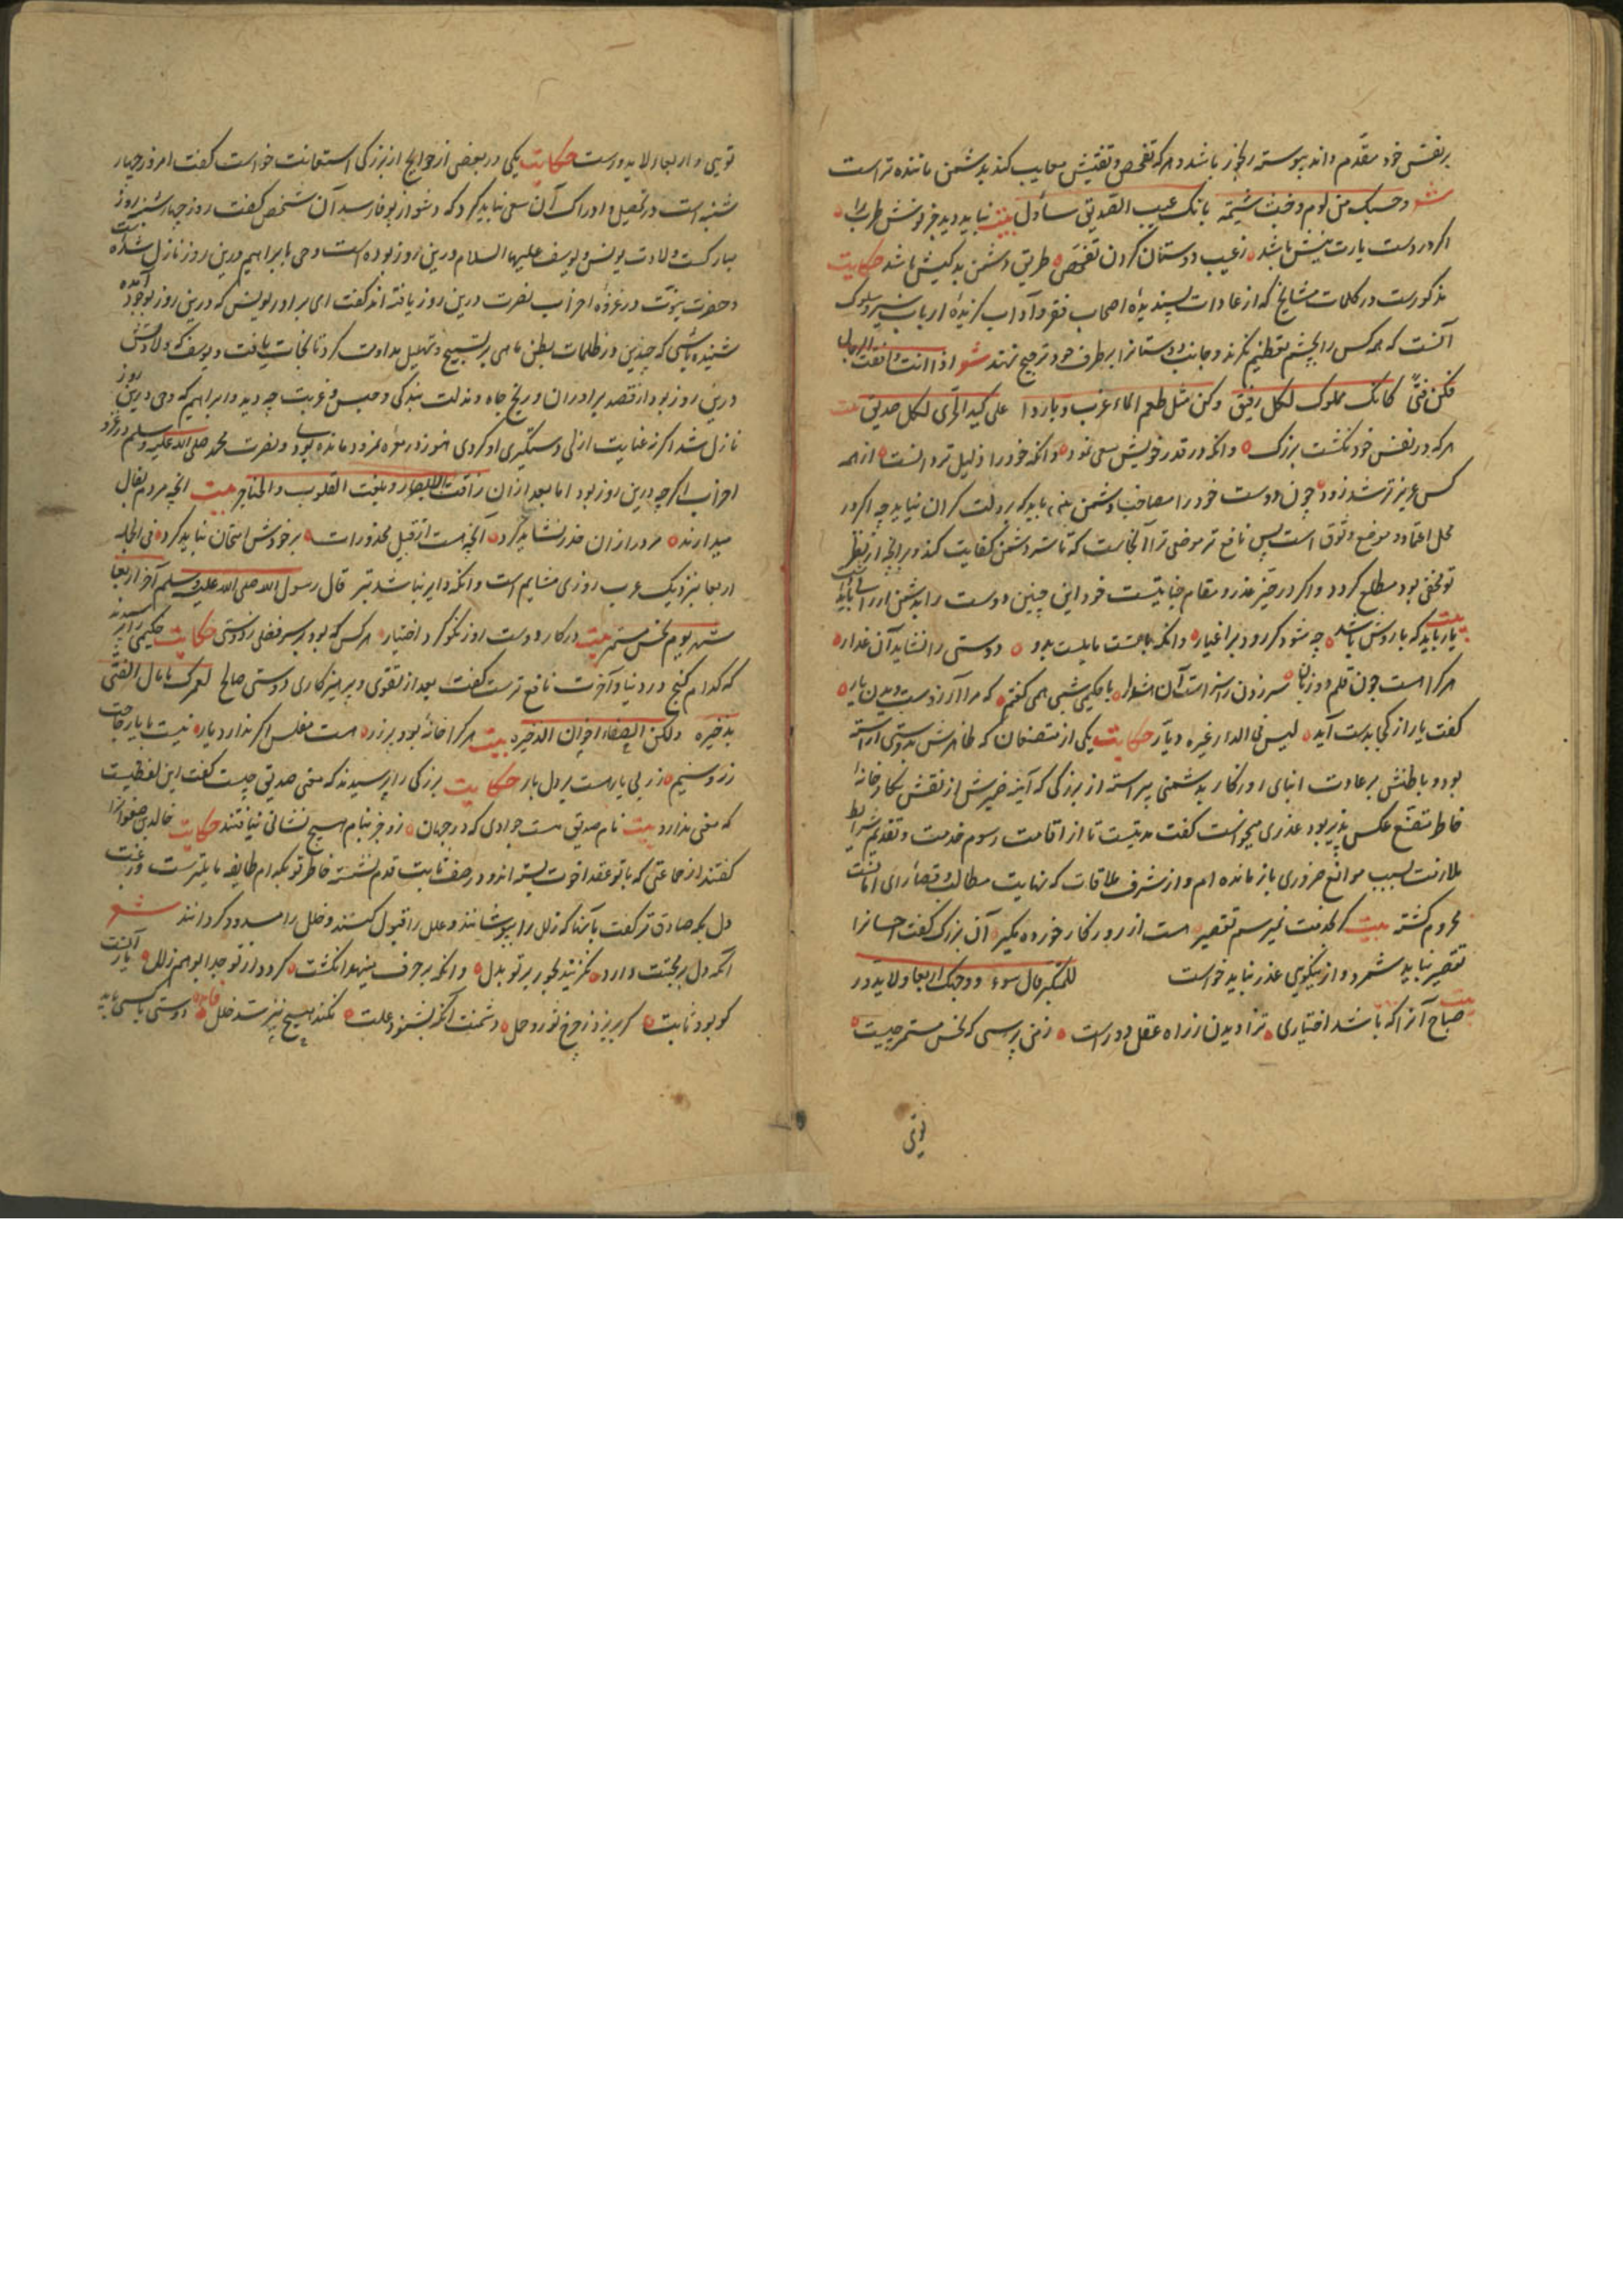 بر نفس خود مقدم داند پیوسته رنجور باشد و هر که تفحص و تفتیش معایب کند بدشمن ماننده تر است
شعر وحسبک من لوم وخبث شیمة بانک عیب الصدیق سأول بیت نباید دید جز رویش طرب را
اگر در دست یارت نیش باشد ز عیب دوستان کردن تفحص طریق دشمن بدکیش باشد حکایت
مذکورست در کلمات مشایخ که از عادات پسندیده اصحاب فقر و آداب گزیده ارباب سیر و سلوک
آنست که همه کس را بچشم تعظیم نگرند و جانب دوستانرا بر طرف خود ترجیح نهند شعر اذا انت رافقت الرجال
فکن فتی کانک مملوک لکل رفیق وکن مثل طعم الماء عذب وباردا علی کبد الحری لکل صدیق بیت
هر که در نفس خود نگشت بزرگ وانکه در قدر خویش سعی نمود وانکه خود را ذلیل تر دانست از همه
کس عزیز تر شد زود چون دوست خود را مصاحب دشمن بینی باید که بر دلت گران نیاید چه اگر در
محل اعتماد و موضع وثوق است پس نافع تر موضعی ترا آنجاست که تا شر دشمن کفایت کند و بر آنچه از نظر
تو مخفی بود مطلع گردد و اگر در حیز غدر و مقام خیانتست خود این چنین دوست را بدشمن ارزانی باید
بیت یار باید که یار وش باشد چه شود گر رود بر اغیار وانکه بایست نایست بدو دوستی را نشاید آن غدار
هر کرا هست چون قلم دو زبان سر زدن راسزاست آن هشدار با حکیمی شبی همی گفتم که مرا آرزوست دیدن یار
گفت یار از کجا بدست آید لیس فی الدار غیره دیار حکایت یکی از متصنعان که ظاهرش بدوستی آراسته
بود و باطنش بر عادت ابنای روزگار بدشمنی پیراسته از بزرگی که آینه ضمیرش از نقش نگارخانه
خاطر متصنع عکس پذیر بود عذری میخواست گفت مدتیست تا از اقامت رسوم خدمت و تقدیم شرایط
ملازمت بسبب موانع ضروری باز مانده ام و از شرف ملاقات که نهایت مطالب و قصارای امانیست
محروم گشته بیت گر بخدمت نمیرسم تقصیر هست از روزگار خورده مگیر آن بزرگ گفت احسانرا
تقصیر نباید شمرد و از نیکویی عذر نباید خواست للمتکبر فال سوء ووجهک اربعا ولا یدور
بیت صباح آنرا که باشد اختیاری ترا دیدن ز راه عقل دورست ز من پرسی که نحس مستمر چیست
تویی
تویی و اربعاء لا یدورست حکایت یکی در بعضی از حوایج از بزرگی استعانت خواست گفت امروز چهار
شنبه است در تحصیل و ادراک آن سعی نباید کرد که دشوار بوفا رسد آن شخص گفت روز چهارشنبه روز
مبارکست ولادت یونس و یوسف علیهما السلام درین روز بوده است و وحی بابراهیم درین روز نازل شده است
و حضرت نبوت در غزوه احزاب نصرت درین روز یافته اند گفت ای برادر یونس که درین روز بوجود آمده
شنیده باشی که چندین در ظلمات بطن ماهی بر تسبیح و تهلیل مداومت کرد تا نجات یافت و یوسف که ولادتش
درین روز بود از قصد برادران و رنج چاه و مذلت بندگی و حبس و غربت چه دید و ابراهیم که وحی درین روز
نازل شد اگر نه عنایت ازلی دستگیری او کردی هنوز در نمرود مانده بود و نصرت محمد صلی الله علیه وسلم در غزو
احزاب اگر چه درین روز بود اما بعد از آن زاغت الابصار وبلغت القلوب الحناجر بیت آنچه مردم بفال
میدارند مرد را زان حذر نشاید کرد آنچه هست از قبیل محذورات بر خودش امتحان نباید کرد فی الجمله
اربعا بنزدیک عرب روزی مشایم است وانکه دایر نباشد بتر قال رسول الله صلی الله علیه وسلم آخر اربعا
شهر یوم نحس مستمر بیت در کار دوست روز نکو گر د اختیار هر کس که بود بر سر فضلی ز دوستی حکایت حکیمی را پرسیدند
که کدام گنج در دنیا و آخرت نافع ترست گفت بعد از تقوی و پرهیزکاری دوستی صالح لعمرک ما مال الفتی
بذخیره ولکن الصفاء اخوان الذخیره بیت هر کرا خانه بود بر زر هست مفلس اگر ندارد یار نیست با یار حاجت
زر و سیم زر بی یار هست بر دل بار حکایت بزرگی را پرسیدند که معنی صدیق چیست گفت این لفظیست
که معنی ندارد بیت نام صدیق هست جوادی که در جهان زو جز بنام هیچ نشانی نیافتند حکایت خالد بن صفوانرا
گفتند از جماعتی که با تو عقد اخوت بسته اند و در صف ثابت قدم نشسته خاطر تو بکدام طایفه مایلترست و رغبت
دل بکه صادق تر گفت بآنها که زلل را بپوشانند و علل را قبول کنند و خلل را مسدود گردانند شعر
آنکه دل بر محبتت دارد نگزیند بجور بر تو بدل وانکه بر حرف مینهد انگشت گردد از تو جدا بوهم زلل یار آنست
کو بود ثابت گر بریزد ز چرخ ثور و حمل دشمنت آنکه نشنود علت نکند هیچ نیز سد خلل فایده دوستی با کسی باید